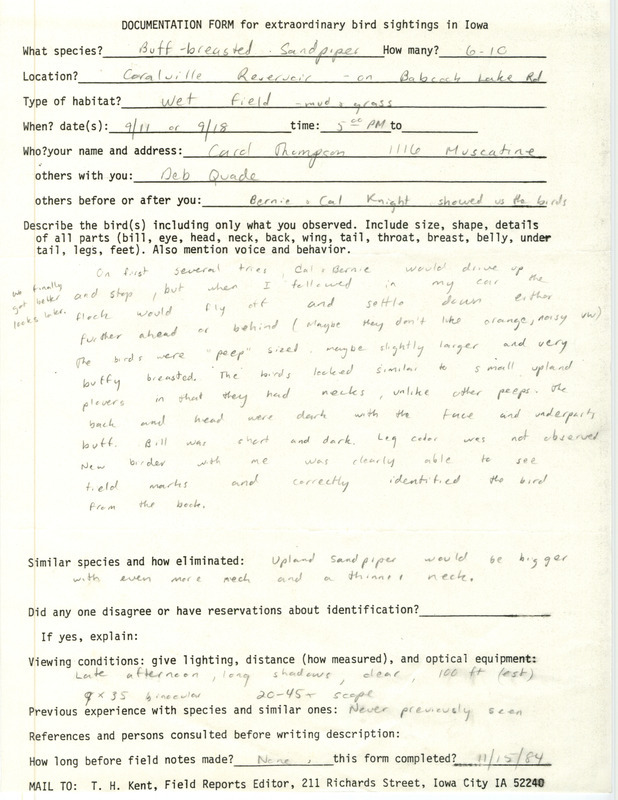 DOCUMENTATION FORM for extraordinary bird sightings in Iowa
What species? Buff-breasted Sandpiper How many? 6-10
Location? Coralville Reservoir - on Babcock Lake Rd
Type of habitat? Wet field - mud & grass
When? date(s): 9/11 or 9/18 time: 5 00 PM to
Who? your name and address: Carol Thompson 1116 Muscatine
others with you: Deb Quade
others before or after you: Bernie & Cal Knight showed us the birds
Describe the bird(s) including only what you observed. Include size, shape, details
of all parts (bill, eye, head, neck, back, wing, tail, throat, breast, belly, under
tail, legs, feet). Also mention voice and behavior.
we finally
got better
looks later.
On first several tries, Cal & Bernie would drive up
and stop, but when I followed in my car the
flock would fly off and settle down either
further ahead or behind (Maybe they don't like orange, noisy vw)
The birds were "peep" sized, maybe slightly larger and very
buffy breasted. The birds looked similar to small upland
plovers in that they had necks, unlike other peeps. The
back and head were dark with the face and underparts
buff. Bill was short and dark. Leg color was not observed
New birder with me was clearly able to see
field marks and correctly identified the bird
from the book.
Similar species and how eliminated: Upland Sandpiper would be bigger
with even more neck and a thinner neck.
Did any one disagree or have reservations about identification?
If yes, explain:
Viewing conditions: give lighting, distance (how measured), and optical equipment:
Late afternoon, long shadows, clear, 100 ft (est)
9 x 35 binocular 20-45x scope
Previous experience with species and similar ones: Never previously seen
References and persons consulted before writing description:
How long before field notes made? None, this form completed? 11/15/84
MAIL TO: T. H. Kent, Field Reports Editor, 211 Richards Street, Iowa City IA 52240